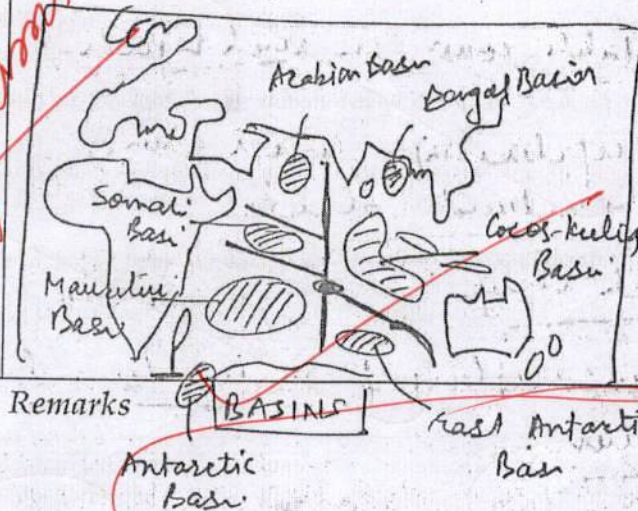 Arabian Basin
Bengal Basin
Somali
Basi
Cocos-Keelig
Basin
Mauritiu
Basi.
Remarks
BASINS
East Antarcti
Basi
Antarctic
Basi.